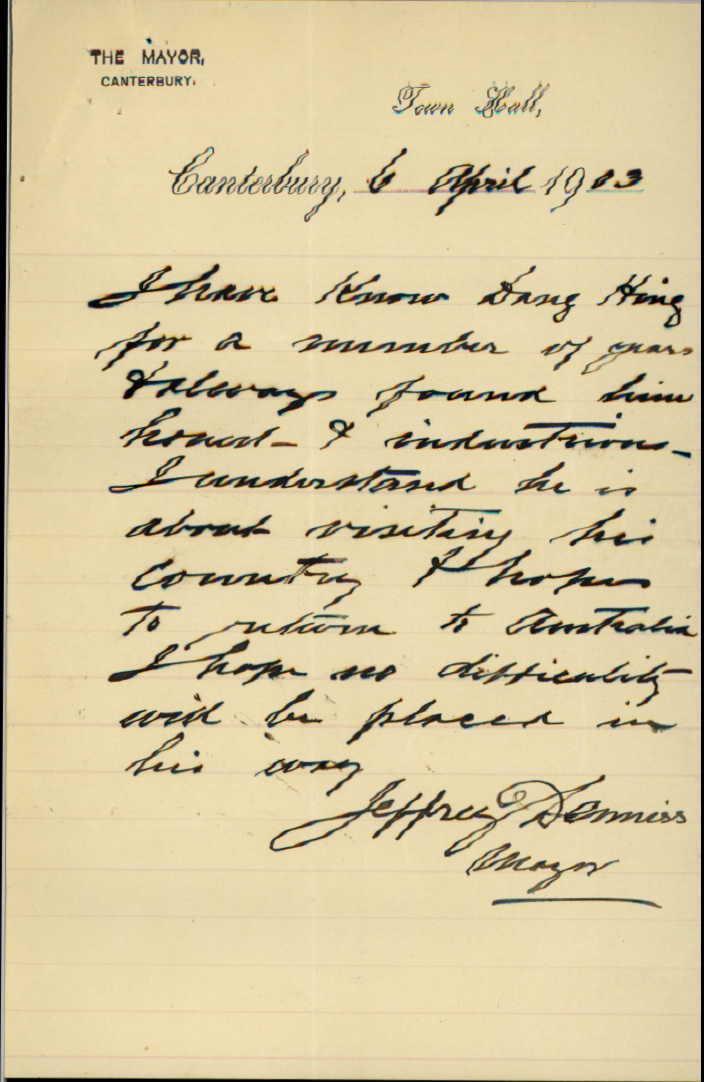 THE MAYOR,
CANTERBURY.
Town Hall,
Canterbury, 6 April 1903
I have Know Hang Hing
for a number of years
& always found him
honest & industrious
I understand he is
about visiting his
country & hopes
to return to Australia
I hope no difficulity
will be placed in
his way
Jeffrey Denniss
Mayor